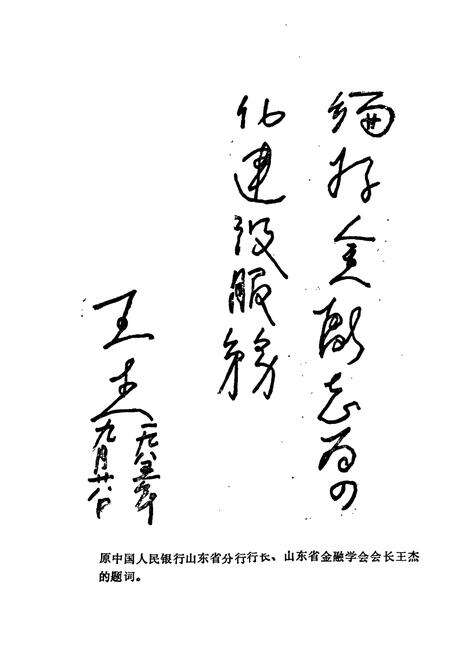 编好金融志为四
化建设服务
王杰
一九八五年
九月廿八日
原中国人民银行山东省分行行长、山东省金融学会会长王杰
的题词。